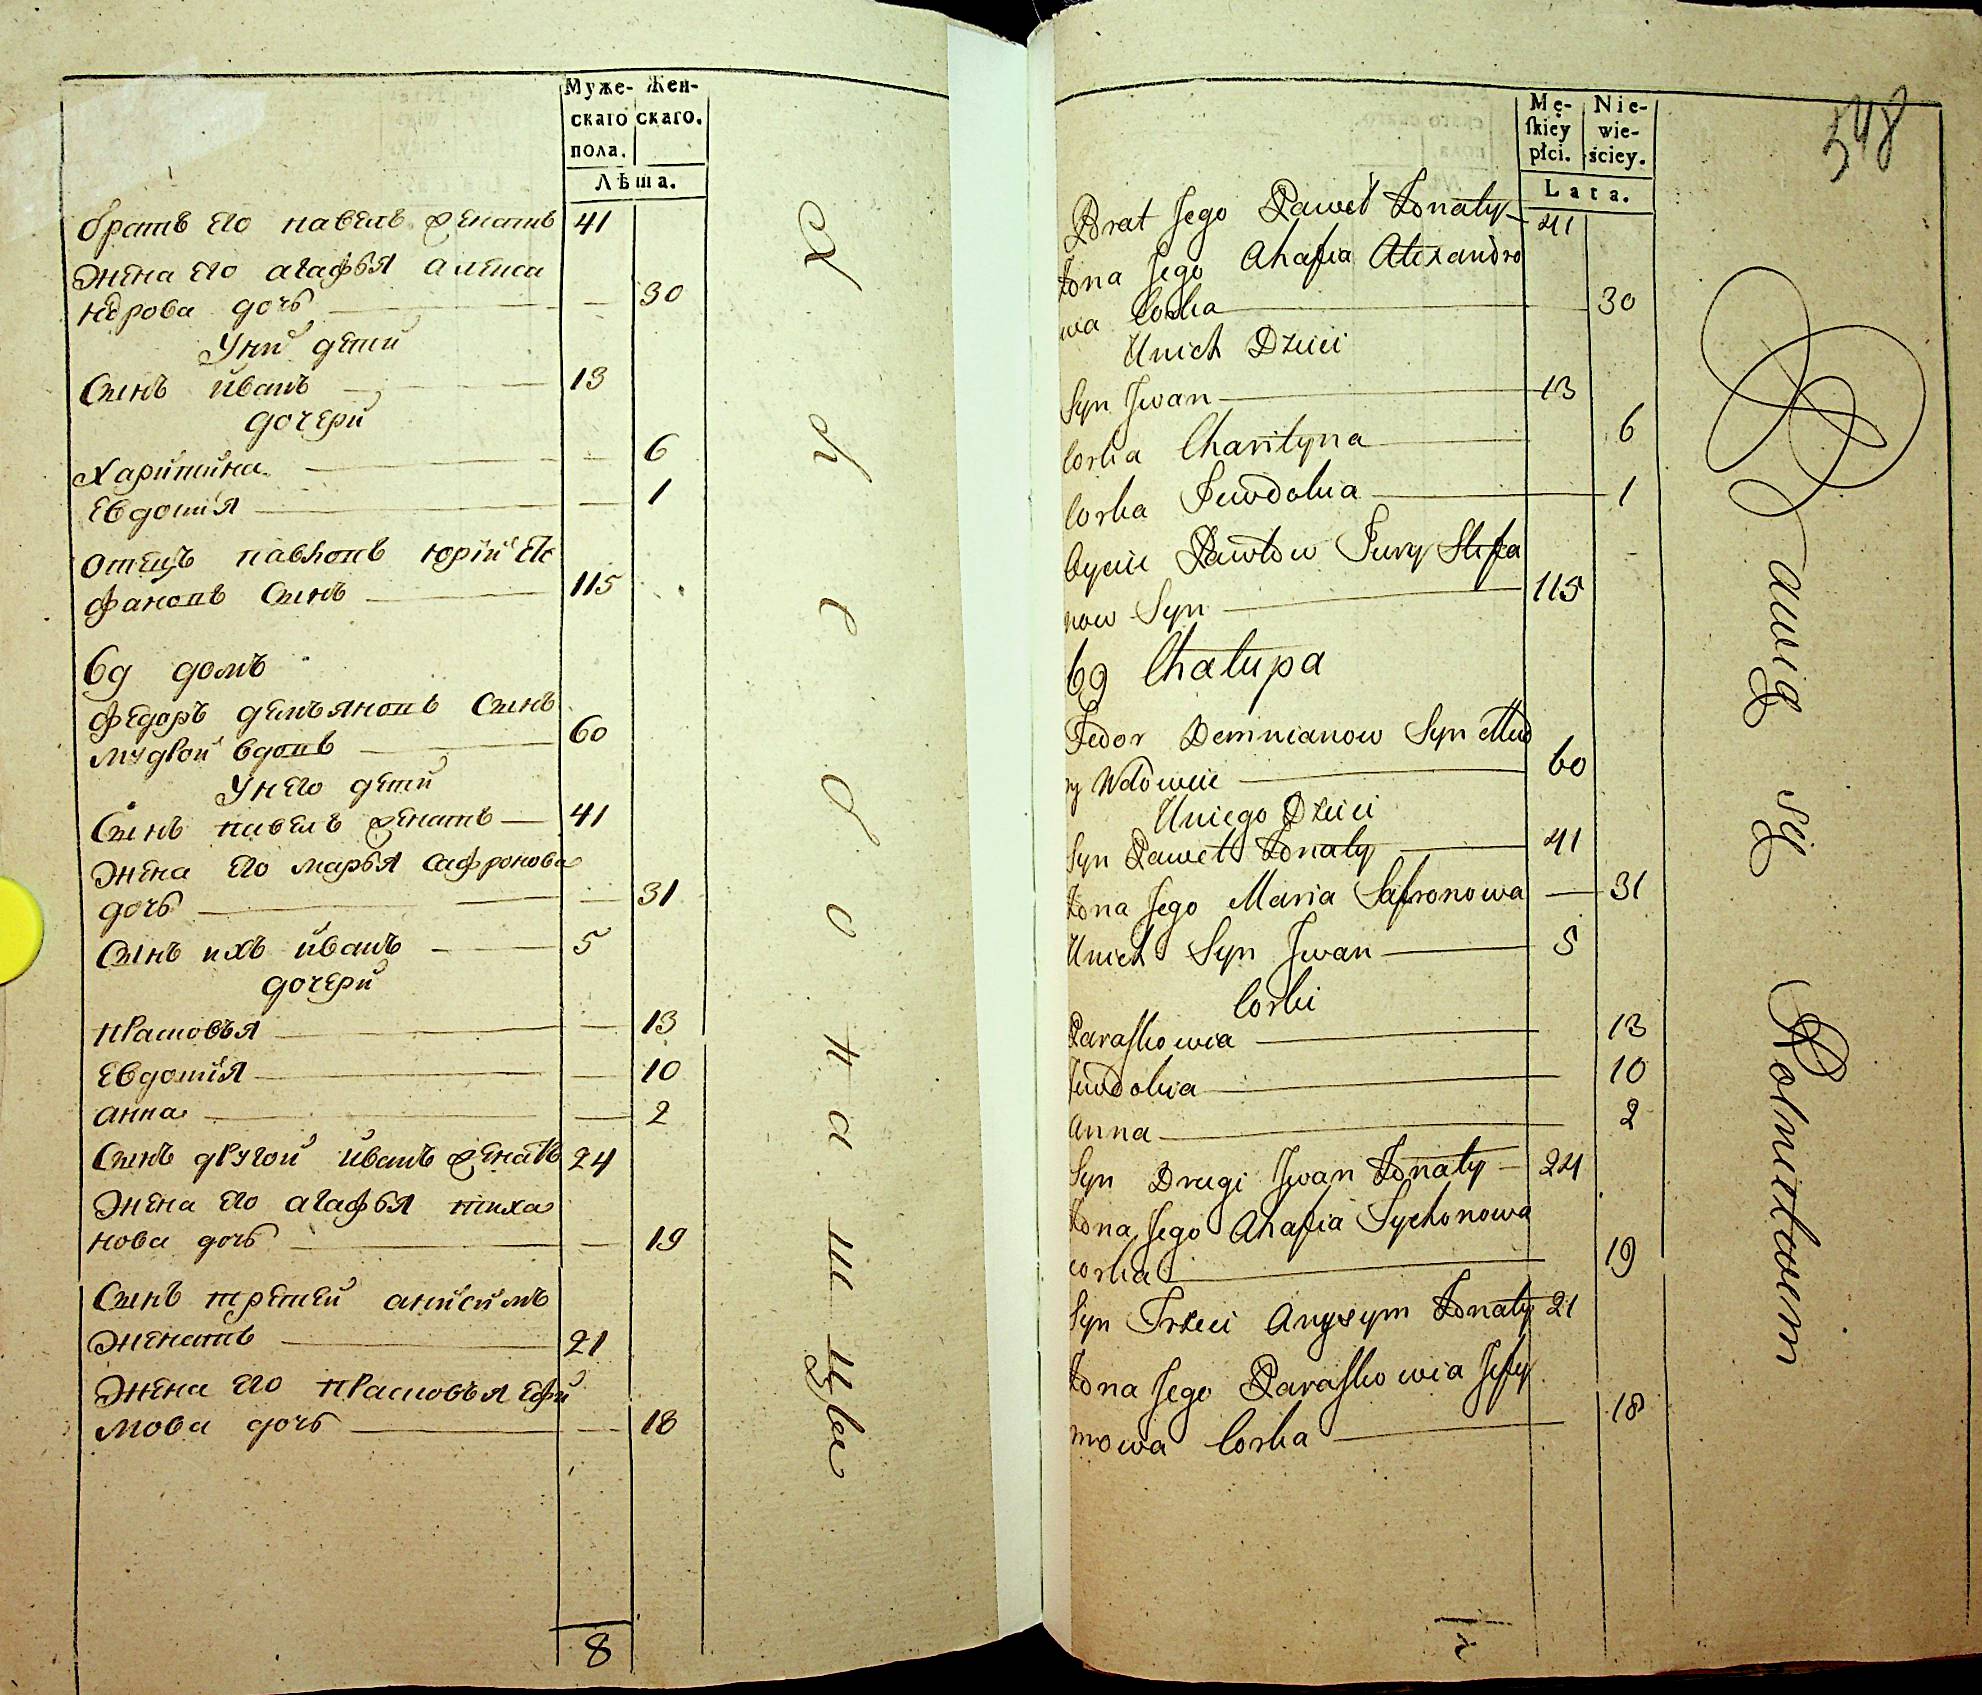 Муже- Жен-
скаго скаго.
пола.
Лѣта.
братъ его павелъ женатъ 41
жена его агафья алекса
ндрова дочь 30
У ний дети
Сынъ иванъ 13
дочери
Харитина 6
Евдокия 1
отецъ павловъ юрий сте
фановъ Сынъ 115
6д домъ
федоръ демьяновъ Сынъ
мудрой вдовъ 60
У него дети
Сынъ павелъ женатъ 41
жена его марья сафронова
дочь 31
Сынъ ихъ иванъ 5
дочери
прасковья 13
Евдокия 10
анна 2
Сынъ другой иванъ женатъ 24
жена его агафья тиха
нова дочь 19
Сынъ третей анисимъ
женатъ 21
жена его прасковья ефи
мова дочь 18
8
Mę- Nie-
skiey wie-
płci. ściey.
Lata.
548
Brat Jego Paweł Żonaty 41
Żona Jego Ahafia Alexandro
wa Corka 30
U nich Dzieci
Syn Jwan 13
Corka Charityna 6
Corka Jewdokia 1
Oyciec Pawłow Jury Stefa
now Syn 115
6g Chałupa
Fedor Demnianow Syn Mud
ry Wdowiec 60
U niego Dzieci
Syn Paweł Żonaty 41
Żona Jego Maria Safronowa 31
U nich Syn Jwan 5
Corki
Paraskowia 13
Jewdokia 10
Anna 2
Syn Drugi Jwan Żonaty 24
Żona Jego Ahafia Tychonowa
corka 19
Syn Trzeci Anysym Żonaty 21
Żona Jego Paraskowia Jefy
mowa Corka 18
Bawią się Rolnictwem